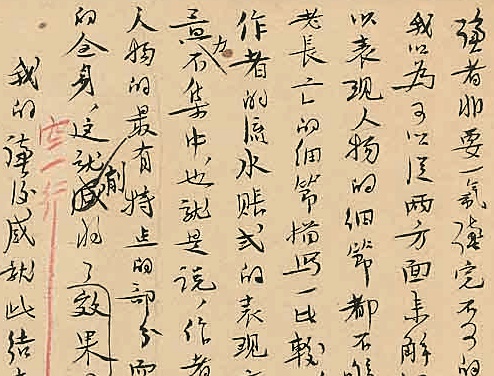 读者非要一气读完不可的
我以为可以从两方面来解
以表现人物的细节都不
老长亡的细节描写一比较
作者的流水账式的表现方
力不集中,也就是说,作者
人物的最有特点的部分而
的全身,这就削弱了效果
我的读后感就此结束
空一行